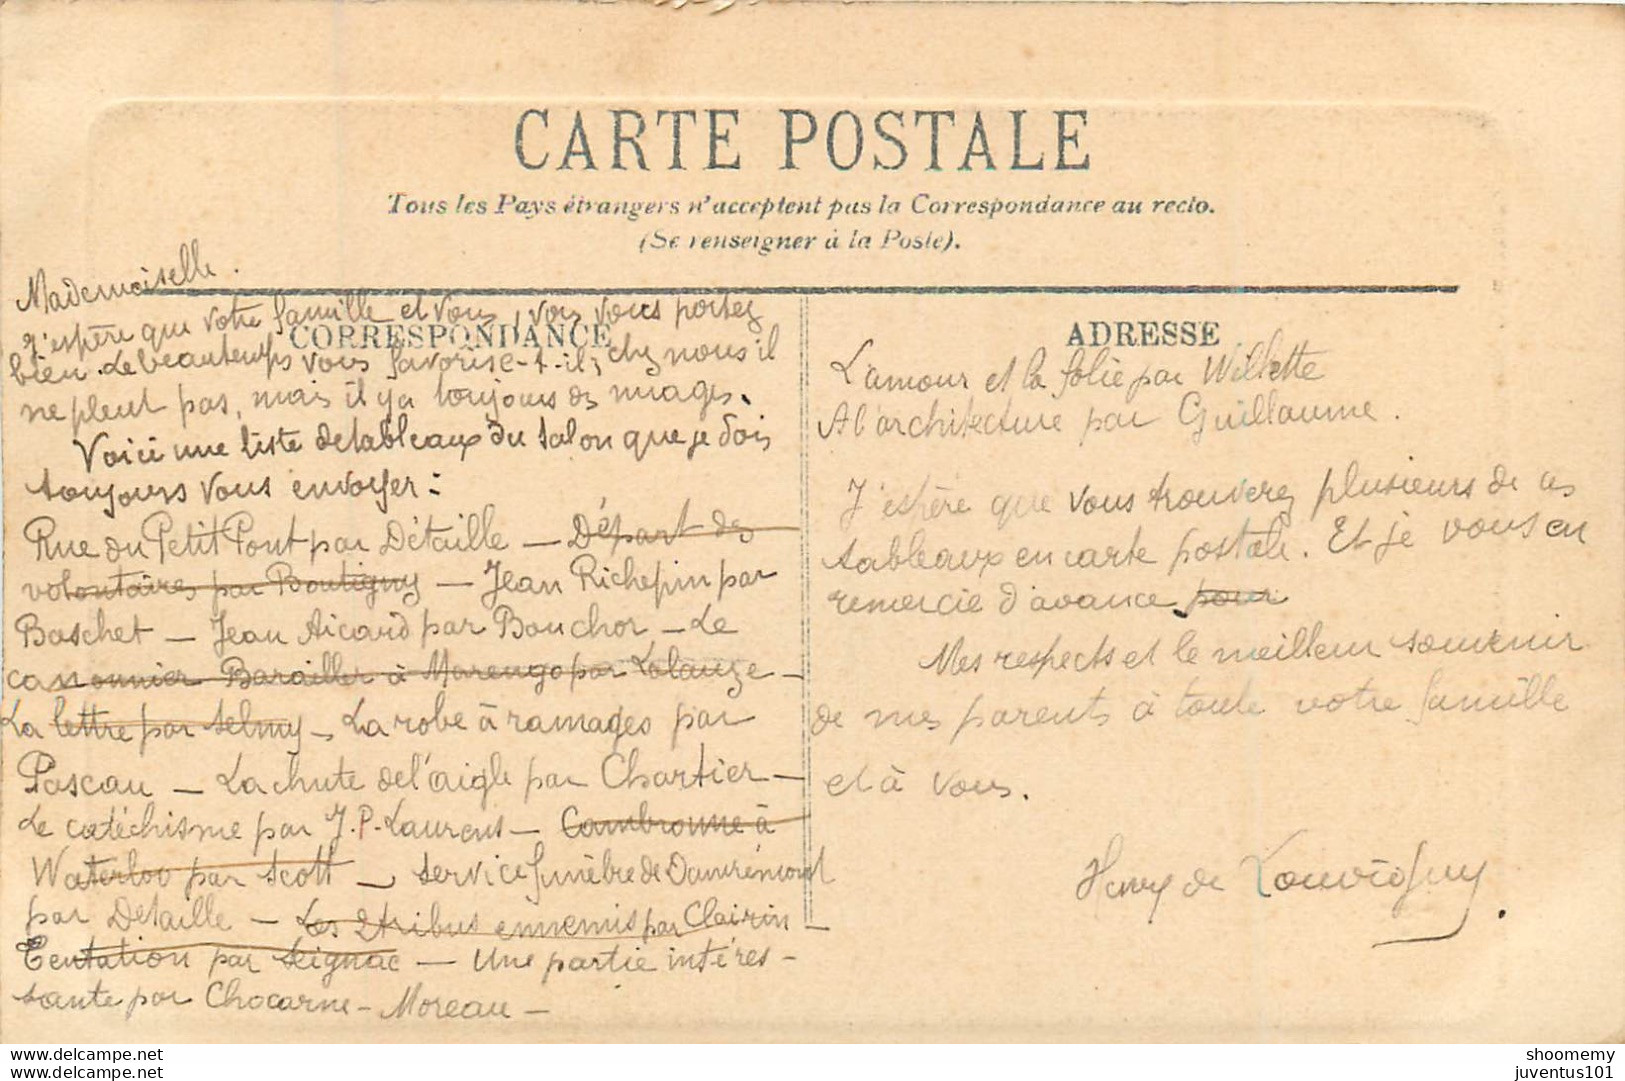 CARTE POSTALE
Tous les Pays étrangers n'acceptent pas la Correspondance au recto.
(Se renseigner à la Poste).
CORRESPONDANCE
Mademoiselle.
J'espère que votre famille et vous, vous vous portez
bien. Le beau temps vous favorise-t-il; chez nous il
ne pleut pas, mais il y a toujours des nuages.
Voici une liste de tableaux du salon que je dois
toujours vous envoyer:
Rue du Petit Pont par Détaille — Départ des
volontaires par Boutigny — Jean Richepin par
Baschet — Jean Aicard par Bouchor — Le
canonnier Barailler à Marengo par Lalauze —
La lettre par Selmy — La robe à ramages par
Pascau — La chute de l'aigle par Chartier —
Le catéchisme par J.P. Laurens — Cambronne à
Waterloo par Scott — Service funèbre de Damrémont
par Détaille — Les 2 tribus ennemis par Clairin —
Tentation par Seignac — Une partie intéres-
sante par Chocarne-Moreau —
ADRESSE
L'amour et la folie par Willette
A l'architecture par Guillaume.
J'espère que vous trouverez plusieurs de ces
tableaux en carte postale. Et je vous en
remercie d'avance pour
Mes respects et le meilleur souvenir
de mes parents à toute votre famille
et à vous.
Henry de Louvigny.
www.delcampe.net
shoomemy
juventus101